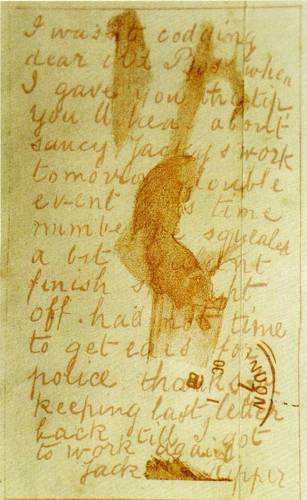 I wasn't codding
dear old Boss when
I gave you the tip
you'll hear about
saucy Jackys work
tomorrow double
event this time
number squealed
a bit couldn't
finish straight
off. had not time
to get ears for
police thanks for
keeping last letter
back till I got
to work again
Jack Ripper
LONDON
OC 1